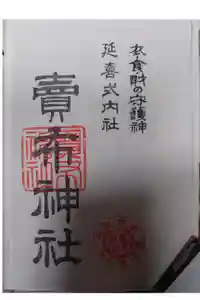 衣食財の守護神
延喜式内社
賣布神社